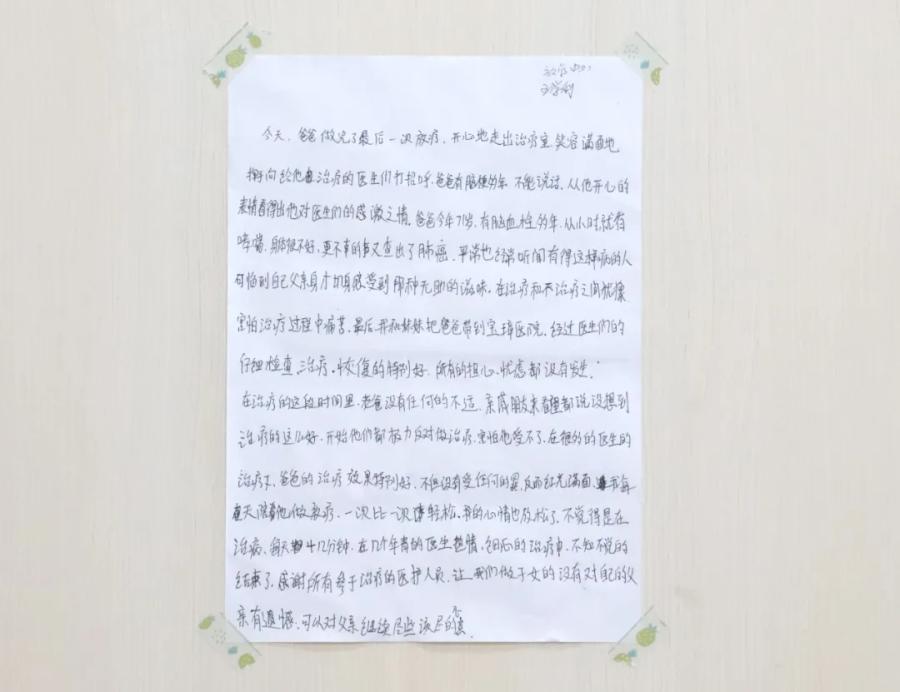 放疗中心
今天、爸爸做完了最后一次放疗，开心地走出治疗室，笑容满面地
向给他治疗的医生们打招呼，爸爸有脑梗多年，不能说话，从他开心的
表情看得出他对医生们的感激之情。爸爸今年71岁，有脑血栓多年，从小时就有
哮喘，身体很不好，更不幸的事又查出了肺癌，平常也经常听闻有得这样病的人
可怕到自己父亲身才切身感受到那种无助的滋味，在治疗和不治疗之间犹豫
害怕治疗过程中痛苦，最后，我和妹妹把爸爸带到宝璋医院，经过医生们的
仔细检查、治疗、恢复的特别好，所有的担心、忧虑都没有发生。
在治疗的这段时间里，老爸没有任何的不适，亲戚朋友来看望都说没想到
治疗的这么好，开始他们都极力反对做治疗，害怕他受不了，在很好的医生的
治疗下，爸爸的治疗效果特别好，不但没有受任何的罪，反而红光满面，我每
天陪着他做放疗，一次比一次轻松，我的心情也放松了，不觉得是在
治病，每天十几分钟，在几个年青的医生热情、细心的治疗中，不知不觉的
结束了，感谢所有参于治疗的医护人员，让我们做子女的没有对自己的父
亲有遗憾，可以对父亲继续尽些该尽的孝。